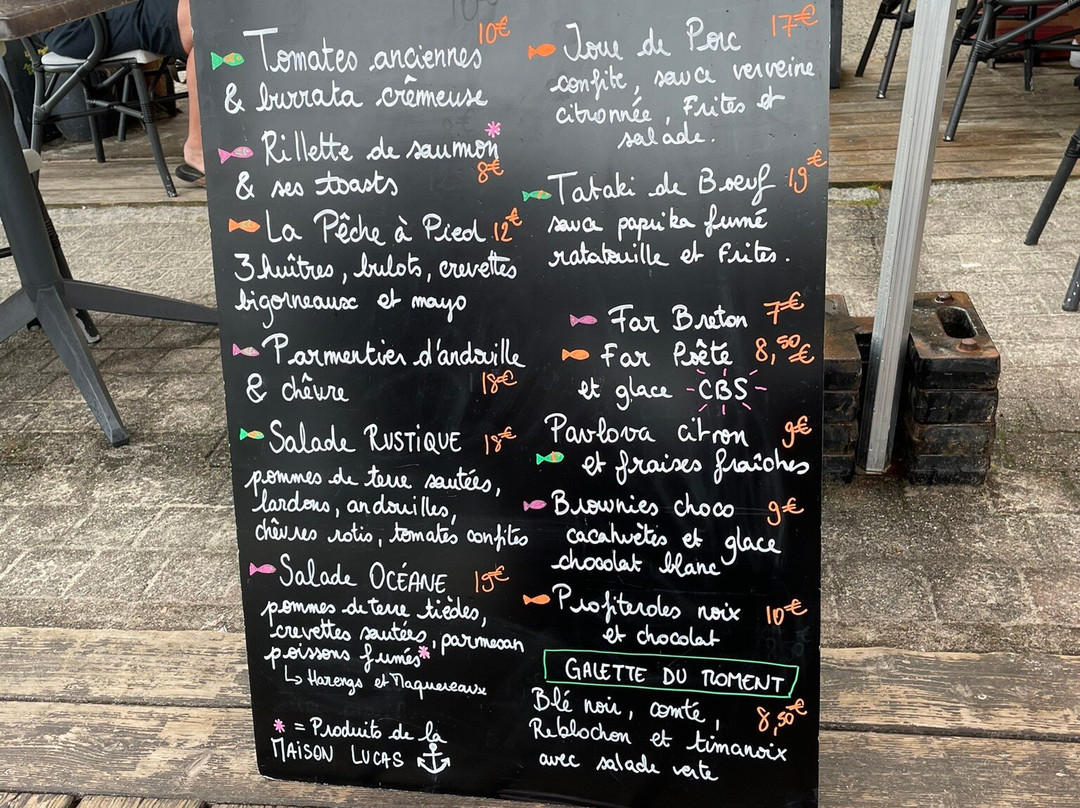 Tomates anciennes 10€
& burrata crêmeuse
Rillette de saumon*
& ses toasts 8€
La Pêche à Pied 12€
3 huîtres, bulots, crevettes
bigorneaux et mayo
Parmentier d'andouille
& chêvre 18€
Salade RUSTIQUE 18€
pommes de terre sautées,
lardons, andouilles,
chêvres rotis, tomates confites
Salade OCÉANE 19€
pommes de terre tièdes,
crevettes sautées, parmesan
poissons fumés*
↳ Harengs et Maquereaux
* = Produits de la
MAISON LUCAS
Joue de Porc 17€
confite, sauce verveine
citronnée, Frites et
salade.
Tataki de Boeuf 19€
sauce paprika fumé
ratatouille et Frites.
Far Breton 7€
Far Poêté 8,50€
et glace CBS
Pavlova citron 9€
et fraises fraîches
Brownies choco 9€
cacahuètes et glace
chocolat blanc
Profiteroles noix 10€
et chocolat
GALETTE DU MOMENT
Blé noir, comté, 8,50€
Reblochon et timanoix
avec salade verte